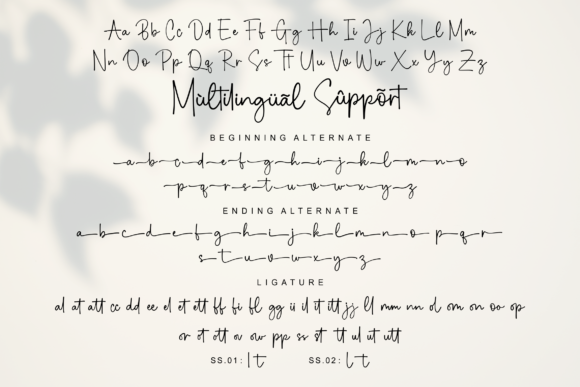 Aa Bb Cc Dd Ee Ff Gg Hh Ii Jj Kk Ll Mm
Nn Oo Pp Qq Rr Ss Tt Uu Vv Ww Xx Yy Zz
Mùltilingüãl Sûppõrt
BEGINNING ALTERNATE
a b c d e f g h i j k l m n o
p q r s t u v w x y z
ENDING ALTERNATE
a b c d e f g h i j k l m n o p q r
s t u v w x y z
LIGATURE
al at att cc dd ee el et ett ff fi fl gg ii il it itt jj ll mm nn ol om on oo op
or ot ott ov ow pp ss st tt ul ut utt
SS.01: l t SS.02: l t